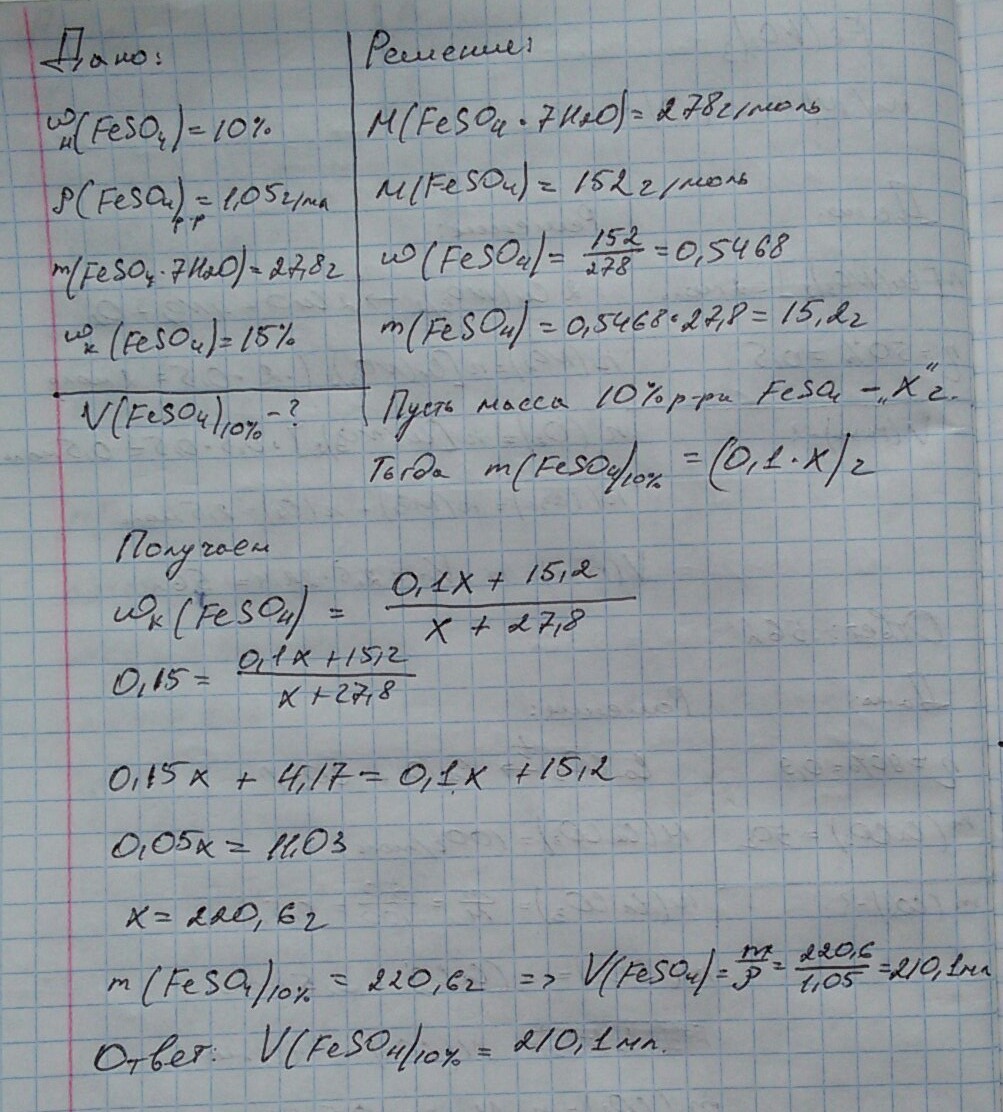 Дано:
ωн(FeSO4)=10%
ρ(FeSO4)р-р=1,05г/мл
m(FeSO4·7H2O)=27,8г
ωк(FeSO4)=15%
V(FeSO4)10%-?
Решение:
M(FeSO4·7H2O)=278г/моль
M(FeSO4)=152г/моль
ω(FeSO4)=152/278=0,5468
m(FeSO4)=0,5468·27,8=15,2г
Пусть масса 10% р-ра FeSO4 - „X" г.
Тогда m(FeSO4)10%=(0,1·X)г
Получаем
ωк(FeSO4) = 0,1X + 15,2 / X + 27,8
0,15 = 0,1X+15,2 / X+27,8
0,15X + 4,17 = 0,1X + 15,2
0,05X = 11,03
X = 220,6г
m(FeSO4)10% = 220,6г => V(FeSO4)=m/ρ=220,6/1,05=210,1мл
Ответ: V(FeSO4)10% = 210,1мл.